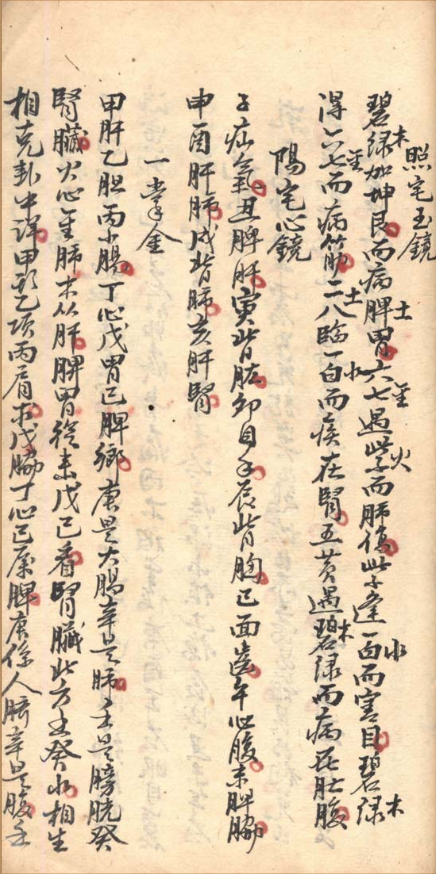 照宅玉鏡
碧綠加坤艮而病脾胃六七遇紫而肝傷紫逢一白而害目碧綠
得六七而病筋二八臨一白而疾在腎五黃遇碧綠而病在肚腹
陽宅心鏡
子疝氣丑脾肝寅背肱卯目手辰背胸巳面齒午心腹未脾脇
申酉肝肺戌背肺亥肝腎
一掌金
甲肝乙胆丙小腸丁心戊胃己脾鄉庚是大腸辛是肺壬是膀胱癸
腎臟火心金肺木從肝脾胃從來戊己看腎臟北方壬癸水相生
相克卦中詳甲頭乙項丙肩求戊脇丁心己屬脾庚係人臍辛是股壬